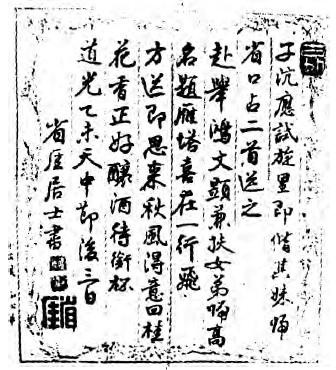 子沆應試旋里即偕其妹歸
省口占二首送之
赴舉鴻文顥兼扶女弟歸高
名題雁塔喜在一行飛
方送即思來秋風得意回桂
花香正好釀酒待銜杯
道光乙未天中節後三日
省厓居士書